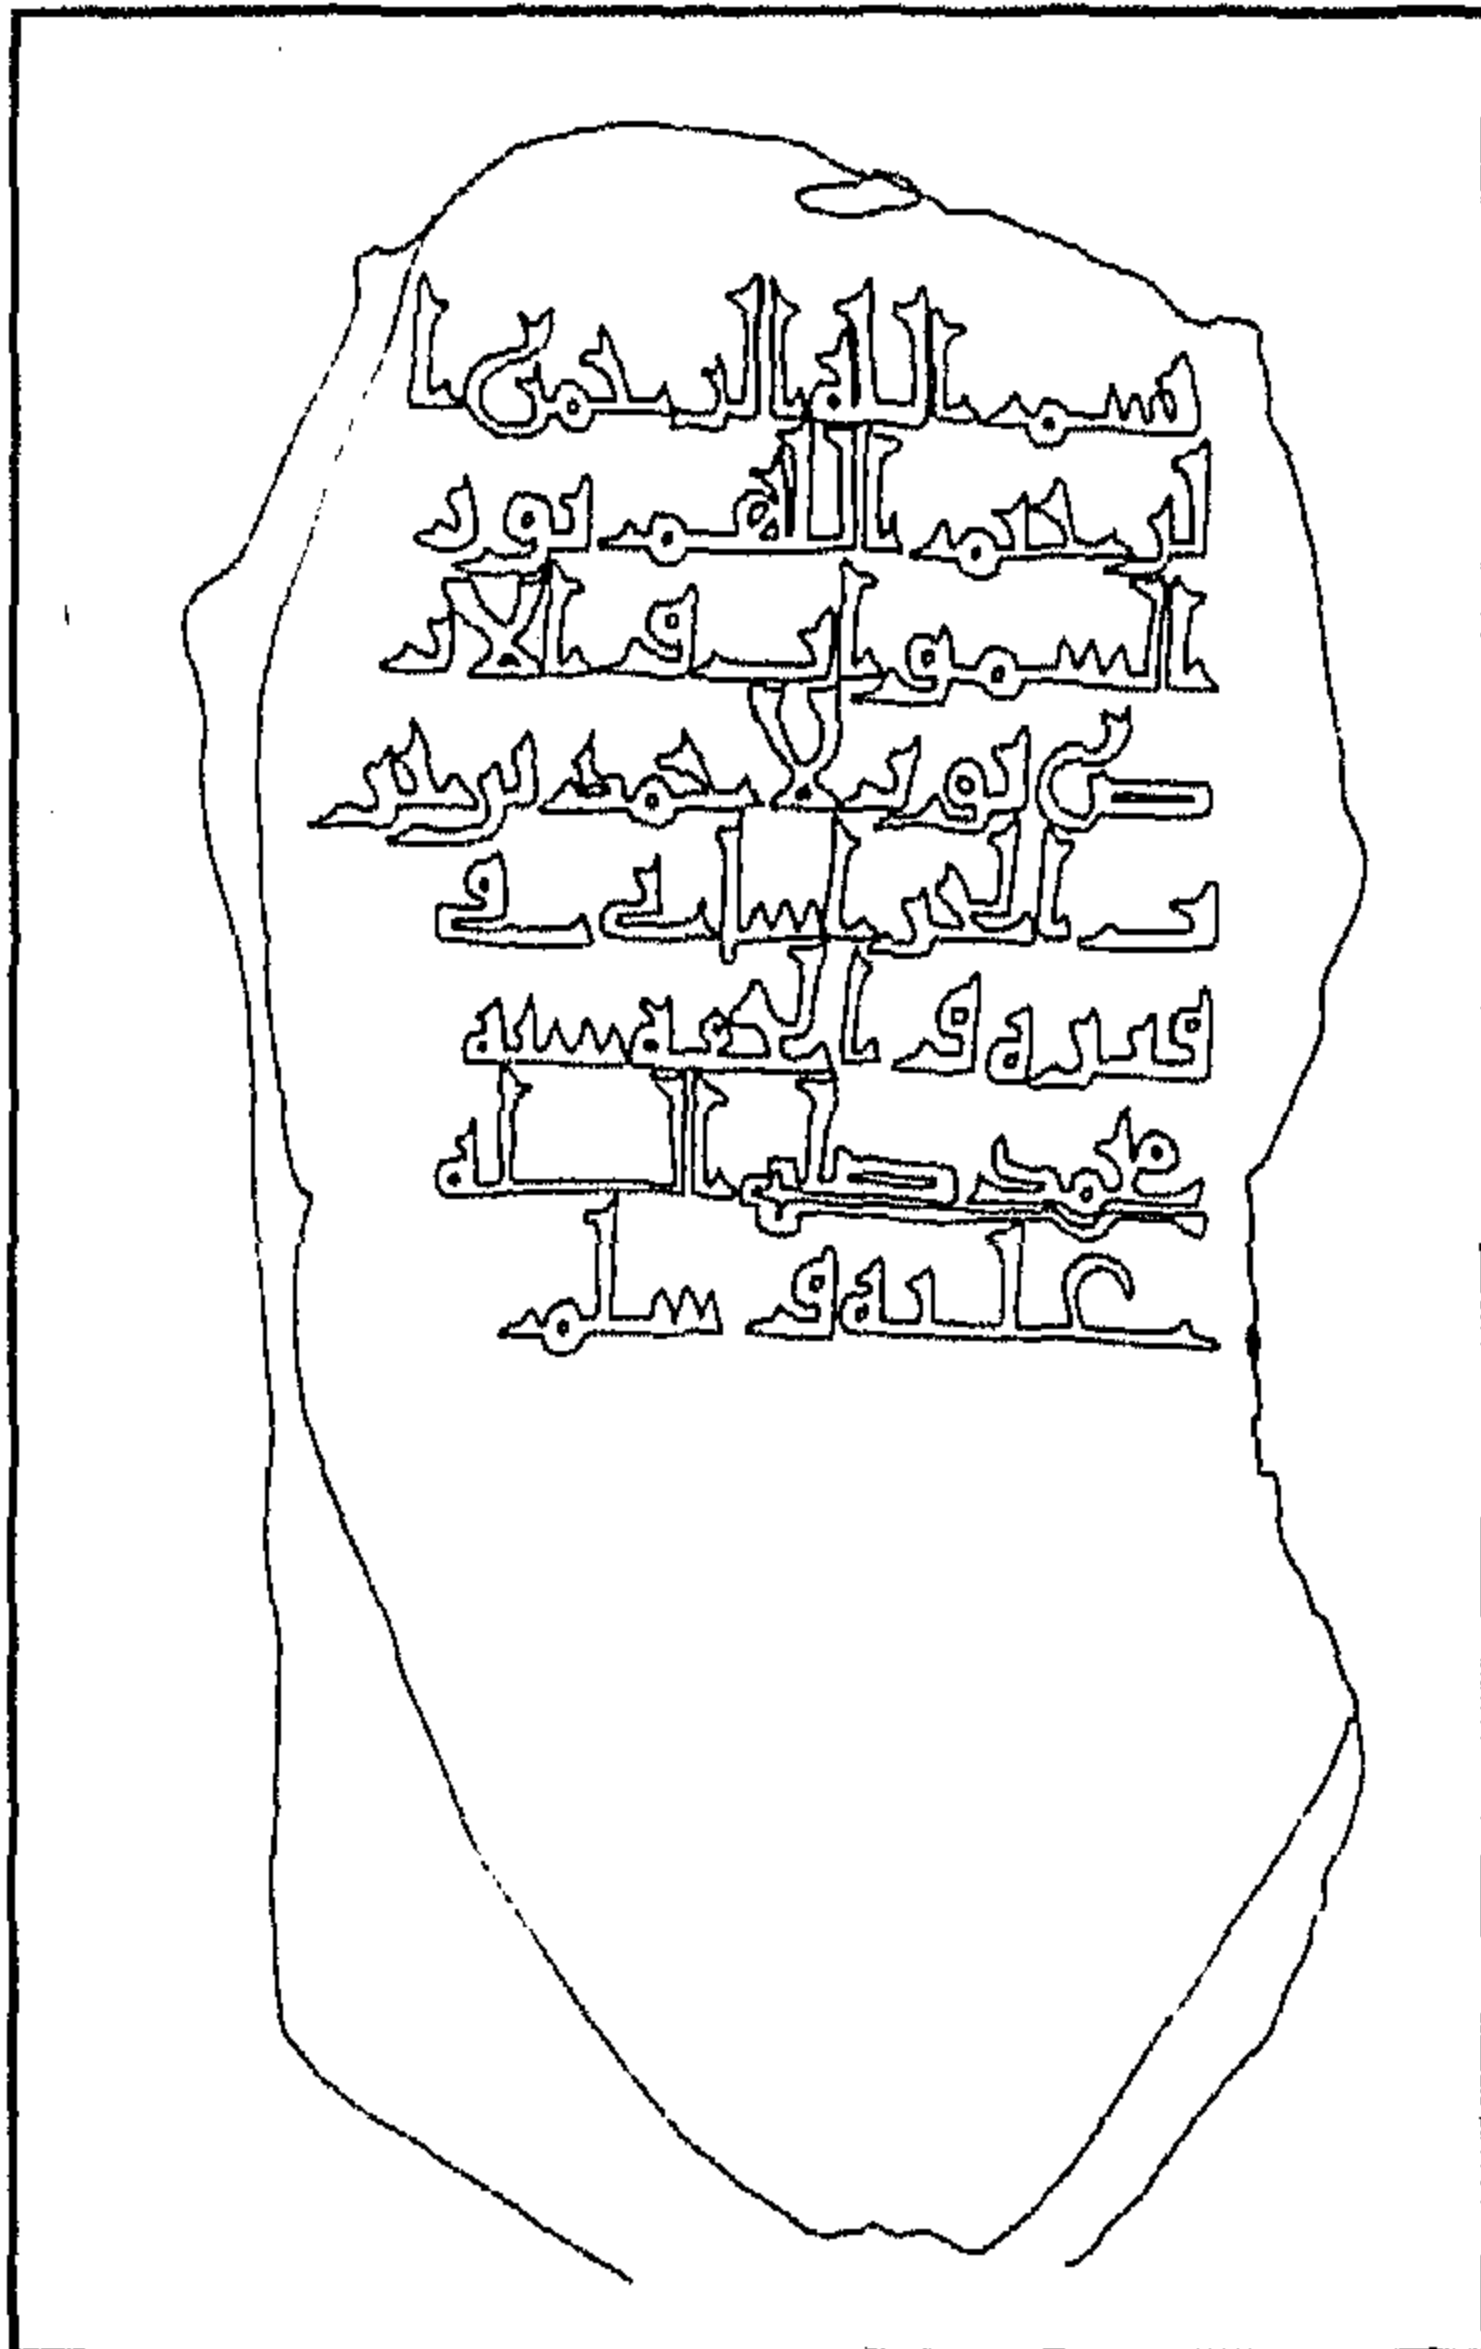 بسم الله الرحمن ا
لرحيم اللهم نور
السموات و الار
ض نور لاحمد بن
الخراساني في
قبره و الحقه بنبيه
محمد صلى الله
عليه و سلم